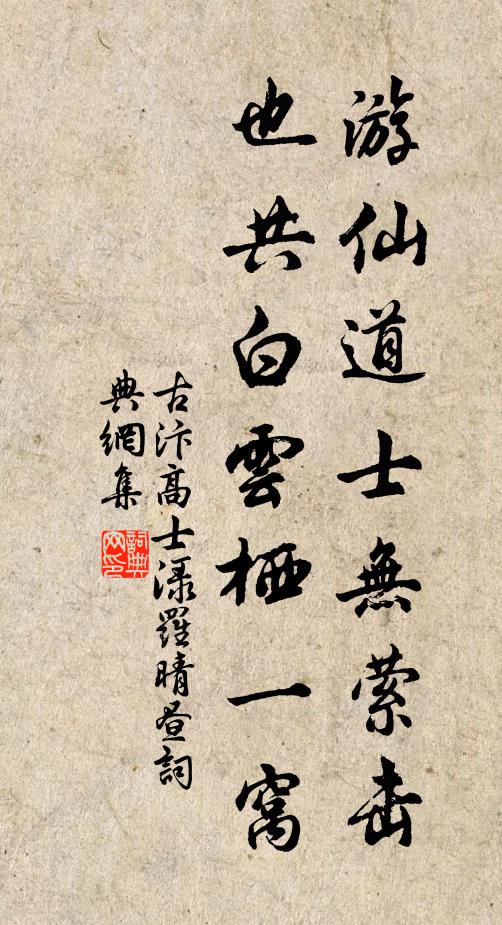 游仙道士無縈
也共白雲栖一窩
古汴高士渌羅晴昼詞
典網集
詞典網印